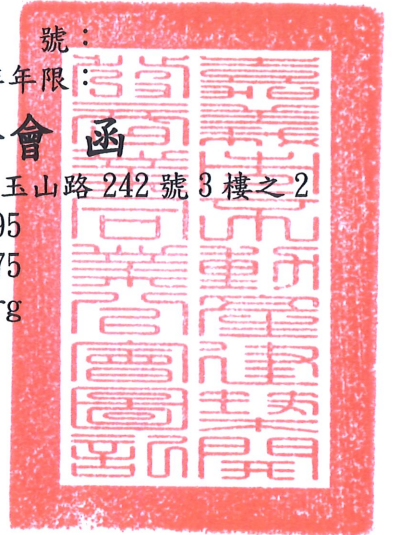 號：
年年限：
會 函
玉山路 242 號 3 樓之 2
95
75
rg
嘉義市不動產建築開
發商業同業公會圖記